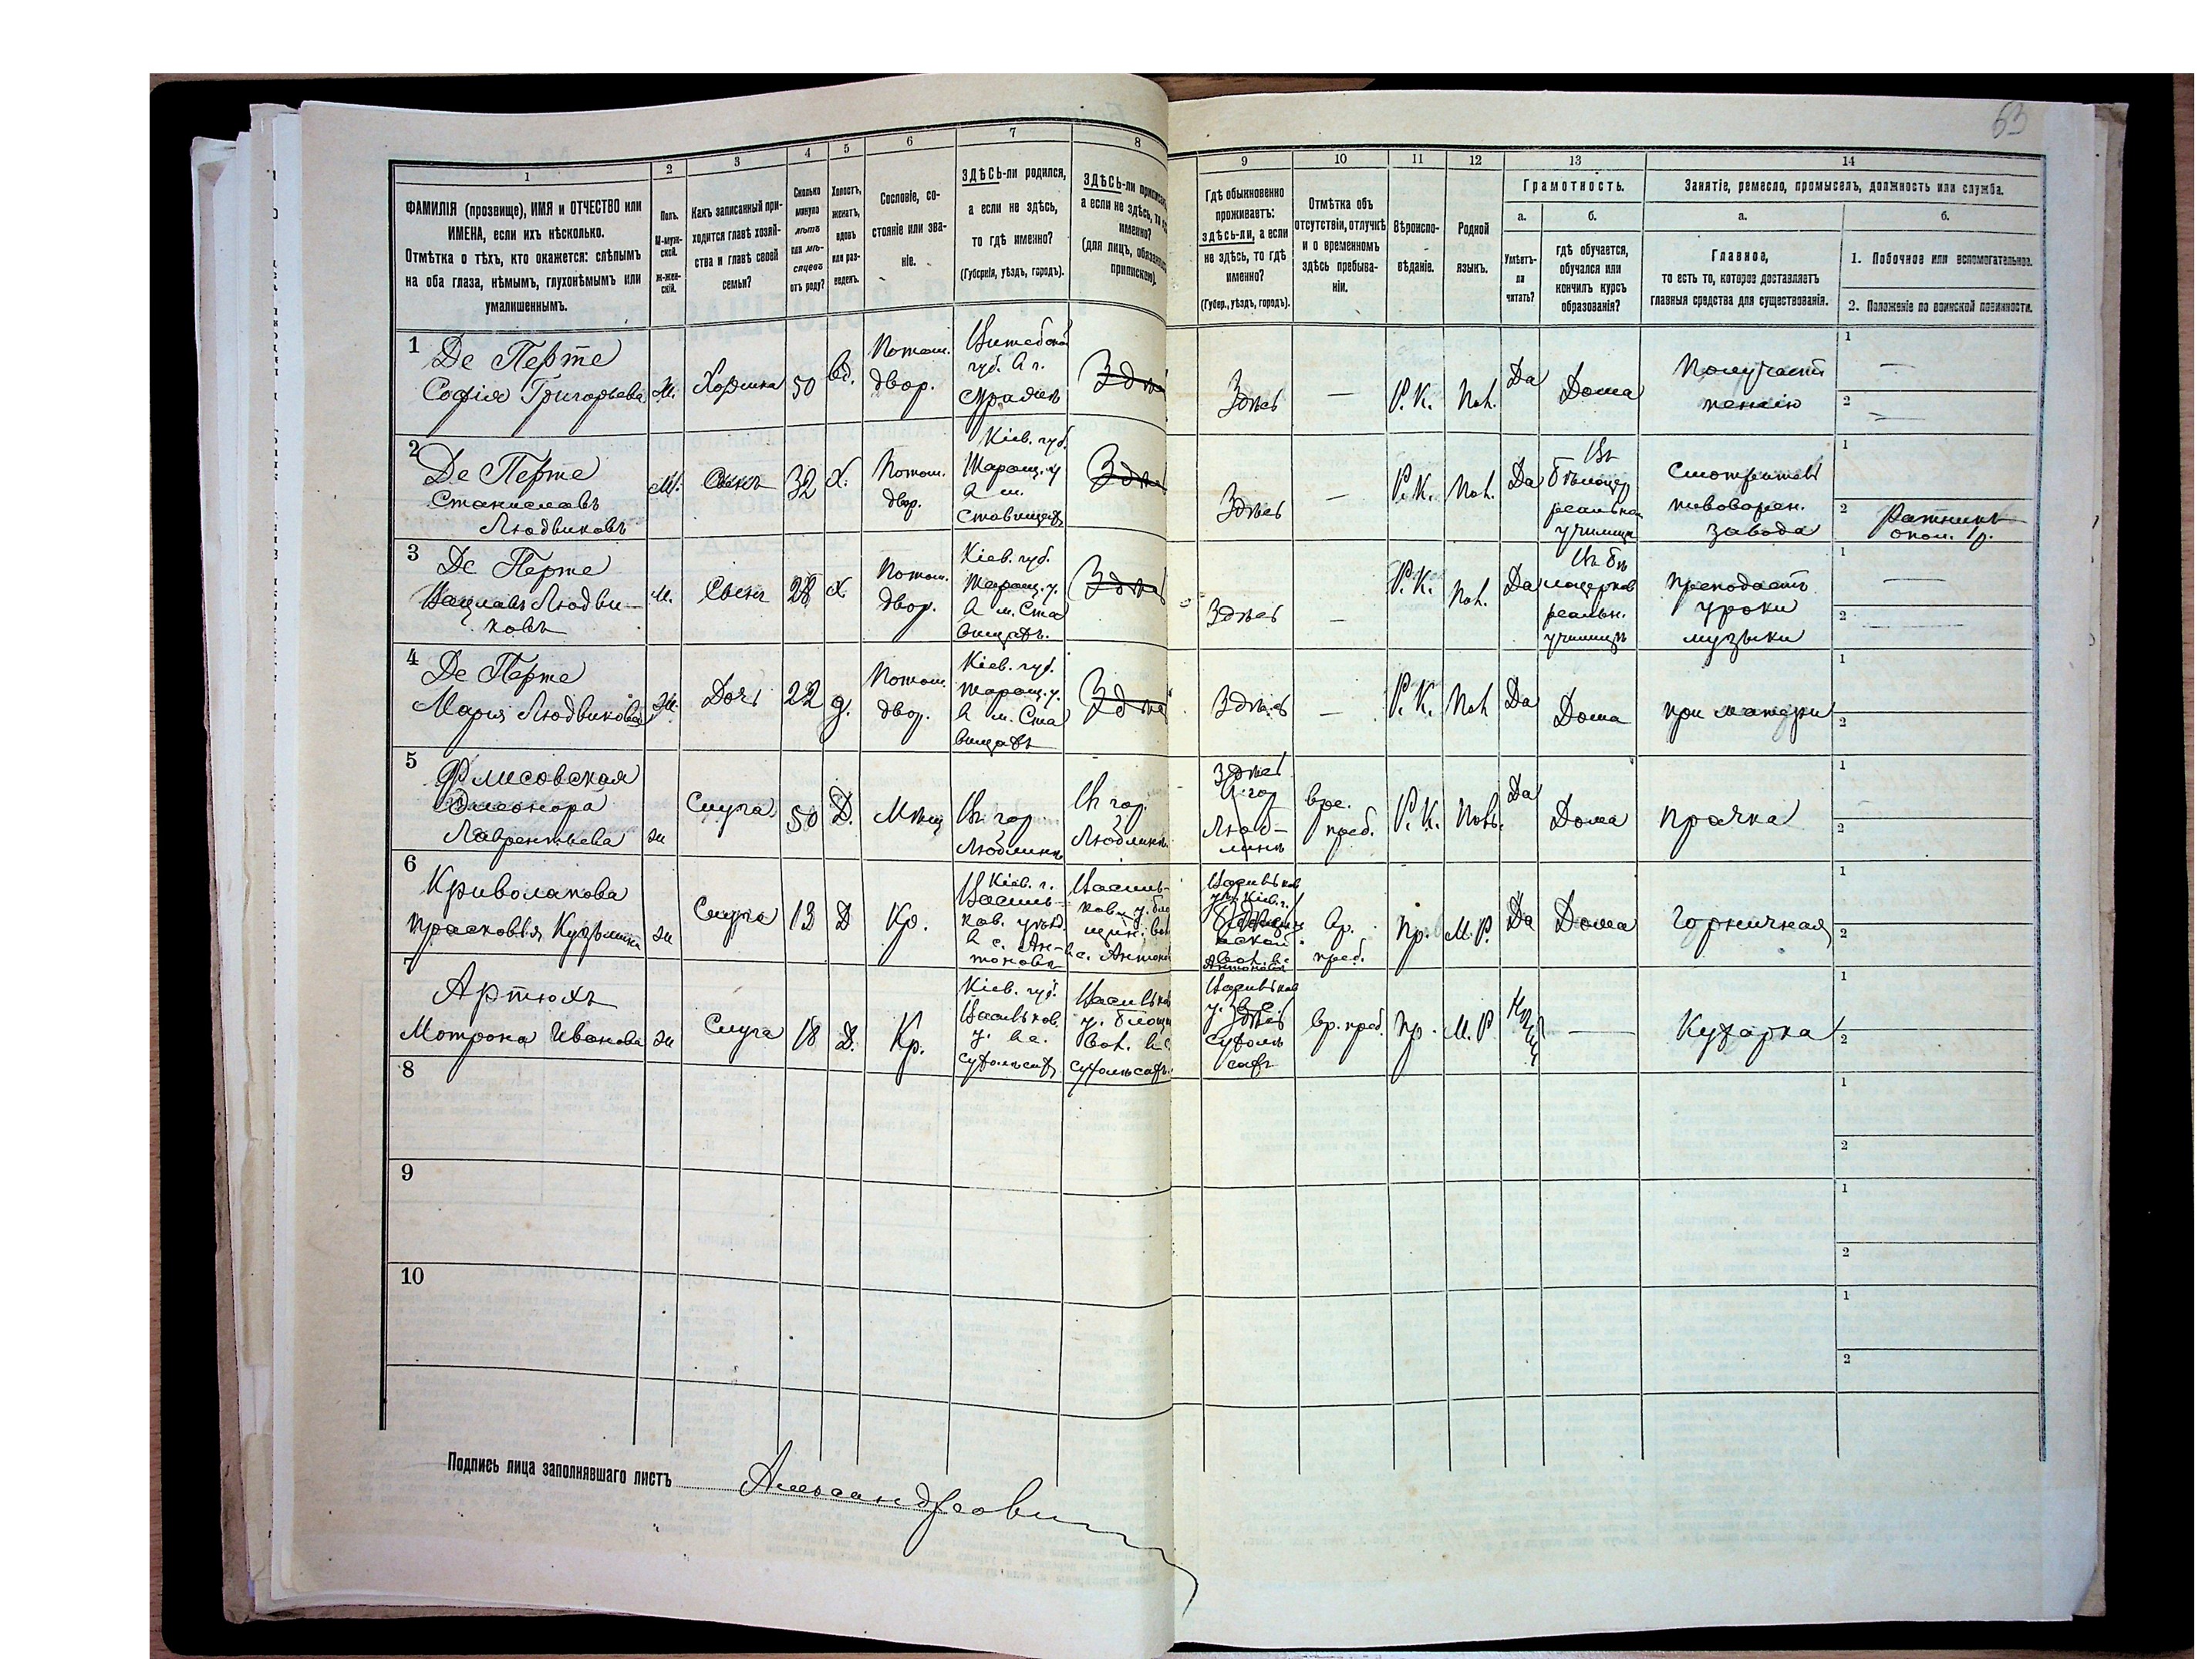 63
1
2
3
4
5
6
7
8
9
10
11
12
13
14
ФАМИЛІЯ (прозвище), ИМЯ и ОТЧЕСТВО или
ИМЕНА, если ихъ нѣсколько.
Отмѣтка о тѣхъ, кто окажется: слѣпымъ
на оба глаза, нѣмымъ, глухонѣмымъ или
умалишеннымъ.
Полъ.
М-муж-
ской.
ж-жен-
скій.
Какъ записанный при-
ходится главѣ хозяй-
ства и главѣ своей
семьи?
Сколько
минуло
лѣтъ
или мѣ-
сяцевъ
отъ роду?
Холостъ,
женатъ,
вдовъ
или раз-
веденъ.
Сословіе, со-
стояніе или зва-
ніе.
ЗДѢСЬ-ли родился,
а если не здѣсь,
то гдѣ именно?
(Губернія, уѣздъ, городъ).
ЗДѢСЬ-ли
а если не здѣсь, то
именно?
(для лицъ,
припискою).
Гдѣ обыкновенно
проживаетъ:
здѣсь-ли, а если
не здѣсь, то гдѣ
именно?
(Губер., уѣздъ, городъ).
Отмѣтка объ
отсутствіи, отлучкѣ
и о временномъ
здѣсь пребыва-
ніи.
Вѣроиспо-
вѣданіе.
Родной
языкъ.
Грамотность.
а.
б.
Умѣетъ-
ли
читать?
гдѣ обучается,
обучался или
кончилъ курсъ
образованія?
Занятіе, ремесло, промыселъ, должность или служба.
а.
б.
Главное,
то есть то, которое доставляетъ
главныя средства для существованія.
1. Побочное или вспомогательное.
2. Положеніе по воинской повинности.
1 Де Перте
Софія Григорьева
Хозяика
50
вд.
Потом.
двор.
Витебской
губ. в г.
Здѣсь
Здѣсь
—
Р. К.
Пол.
Да
Дома
Получаетъ
пенсію
1 —
2 —
2 Де Перте
Станиславъ
Людвиковъ
М.
Сынъ
32
Х.
Потом.
двор.
Кіев. губ.
Таращ. у
в м.
Ставищахъ
Здѣсь
Здѣсь
—
Р. К.
Пол.
Да
Въ
реальном
училищѣ
Смотритель
пивоварен.
завода
1
2 Ратникъ
опол. 1 р.
3 Де Перте
Вацлавъ Людви-
ковъ
М.
Сынъ
28
х.
Потом.
двор.
Кіев. губ.
Таращ. у.
в м. Ста
вищахъ.
Здѣсь
Здѣсь
—
Р. К.
Пол.
Да
Въ Бѣ
лоцерков
реальн.
училищѣ
преподаетъ
уроки
музыки
1 —
2 —
4 Де Перте
Марія Людвикова
Ж.
Дочь
22
д.
Потом.
двор.
Кіев. губ.
Таращ. у.
в м. Ста
вищахъ
Здѣсь
Здѣсь
—
Р. К.
Пол
Да
Дома
при матери
1
2
5 Флисовская
Элеонора
Лаврентьева
ж
Слуга
50
Д.
Мѣщ
Въ гор.
Люблинѣ
Въ гор.
Люблинѣ
Здѣсь
В гор
Люб-
линѣ
вре.
преб.
Р. К.
Поль.
Да
Дома
прачка
1
2
6 Криволапова
Прасковья Кузьмина
ж
Слуга
13
Д
Кр.
Кіев. г.
Василь-
ков. уѣзд.
в с. Ан-
тоновкѣ
Василь-
ков. у.
в с. Антонов
Васильков
у. Кіев. г.
вол. в с
Антоновкѣ
Вр.
преб.
Пр.
М. Р.
Да
Дома
Горничная
1
2
7 Артюхъ
Мотрона Иванова
ж
Слуга
18
Д.
Кр.
Кіев. губ.
Васильков.
у. в с.
Сухолѣсахъ
Васильков
у.
вол. в с.
Сухолѣсахъ
Васильков
у. в с.
Здѣсь
Сухолѣ
сахъ
вр. преб.
Пр.
М. Р
—
Кухарка
1
2
8
1
2
9
1
2
10
1
2
Подпись лица заполнявшаго листъ